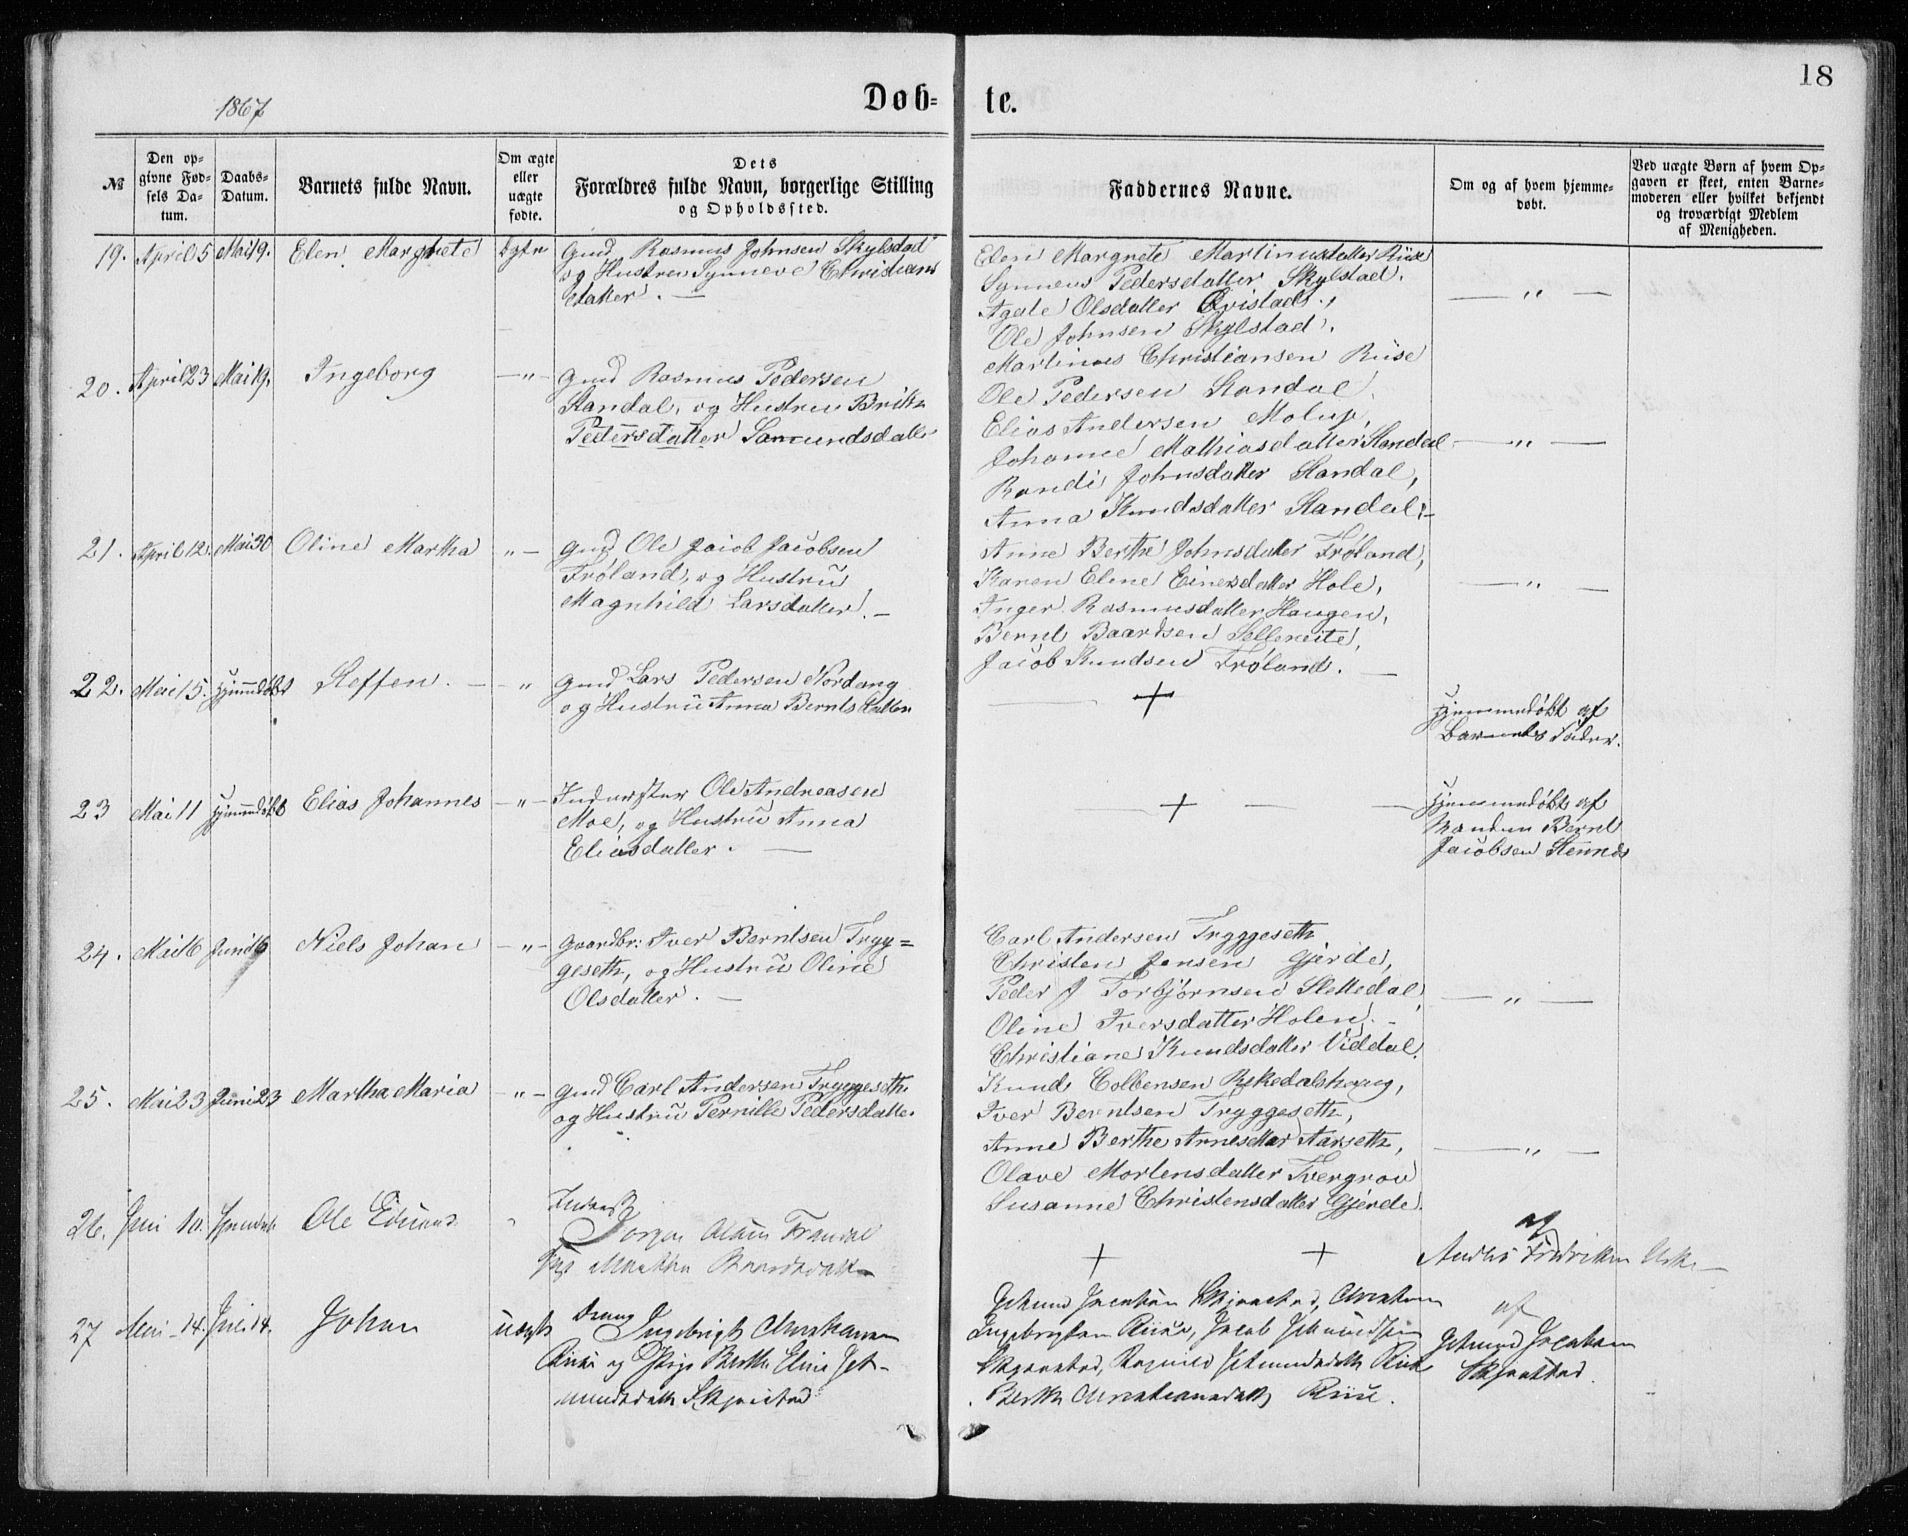 18
1867
Døb-
te.
№
Den op-
givne Fød-
sels Da-
tum.
Daabs-
Datum.
Barnets fulde Navn.
Om ægte
eller
uægte
fødte.
Dets
Forældres fulde Navn, borgerlige Stilling
og Opholdssted.
Faddernes Navne.
Om og af hvem hjemme-
døbt.
Ved uægte Børn af hvem Op-
gaven er skeet, enten Barne-
moderen eller hvilket bekjendt
og troværdigt Medlem
af Menigheden.
19. April 5 Mai 19. Elen Margrete
Gmd Rasmus Johnsen Skylstad
og Hustru Synneve Christians
datter. —
Elen Margrete Martinusdatter Riise
Synneve Pedersdatter Skylstad.
Agate Olsdatter Qvistad.,
Ole Johnsen Skylstad.
Martinus Christiansen Riise
— " —
20. April 23 Mai 19. Ingeborg — " —
Gmd Rasmus Pedersen
Standal, og Hustru Brithe
Pedersdatter
Ole Pedersen Standal,
Elias Andersen Molup,
Johanne Mathiasdatter Standal
Randi Johnsdatter Standal,
Anna Knudsdatter Standal. —
— " —
21. April 12. Mai 30 Oline Martha " —
Gmd Ole Jacob Jacobsen
Frøland, og Hustru
Magnhild Larsdatter. —
Anne Berthe Johnsdatter Frøland,
Karen Elene Einersdatter Hole,
Inger Rasmusdatter Haugen,
Bernt Baardsen
Jacob Knudsen Frøland. —
— " —
22. Mai 15. Hjemmedøbt Steffen. — "
Gmd Lars Pedersen Nordang
og Hustru Anna Berntsdatter
— +
Hjemmedøbt af
Barnets Fader.
23 Mai 11 Hjemmedøbt Elias Johannes — " —
Inderster Ole Andreasen
Moe, og Hustru Anna
Eliasdatter. —
— + — —
Hjemmedøbt af
Manden Bernt
Jacobsen
24. Mai 6 Juni 16 Niels Johan — " —
Gaardbr: Iver Berntsen Tryg=
geseth, og Hustru Oline
Olsdatter. —
Carl Andersen Tryggeseth
Christen Jensen Gjerde,
Peder J Torbjørnsen Slettedal,
Oline Iversdatter Holen. —
Christiane Knudsdatter Viddal.
— " —
25. Mai 23 Juni 23 Martha Maria — " —
Gmd Carl Andersen Tryggeseth
og Hustru Pernille Pedersdatter
Knud Colbensen
Iver Berntsen Tryggeseth,
Anne Berthe Aarseth,
Olave Mortensdatter Tvergrov
Susanne Christensdatter Gjerde.
— " —
26. Juni 10. Ole
Martha
+ +
af
Anders
27 14. 14. Johan uægte
Dreng Ingebrigt Christiansen
Riise og Pige Berthe Eline Jet-
mundsdatter
Jetmund Jacobsen
Riise, Jacob Jetmundsen
Jetmundsdatter Riise
Berthe Christiansdatter Riise.
af
Jetmund Jacobsen